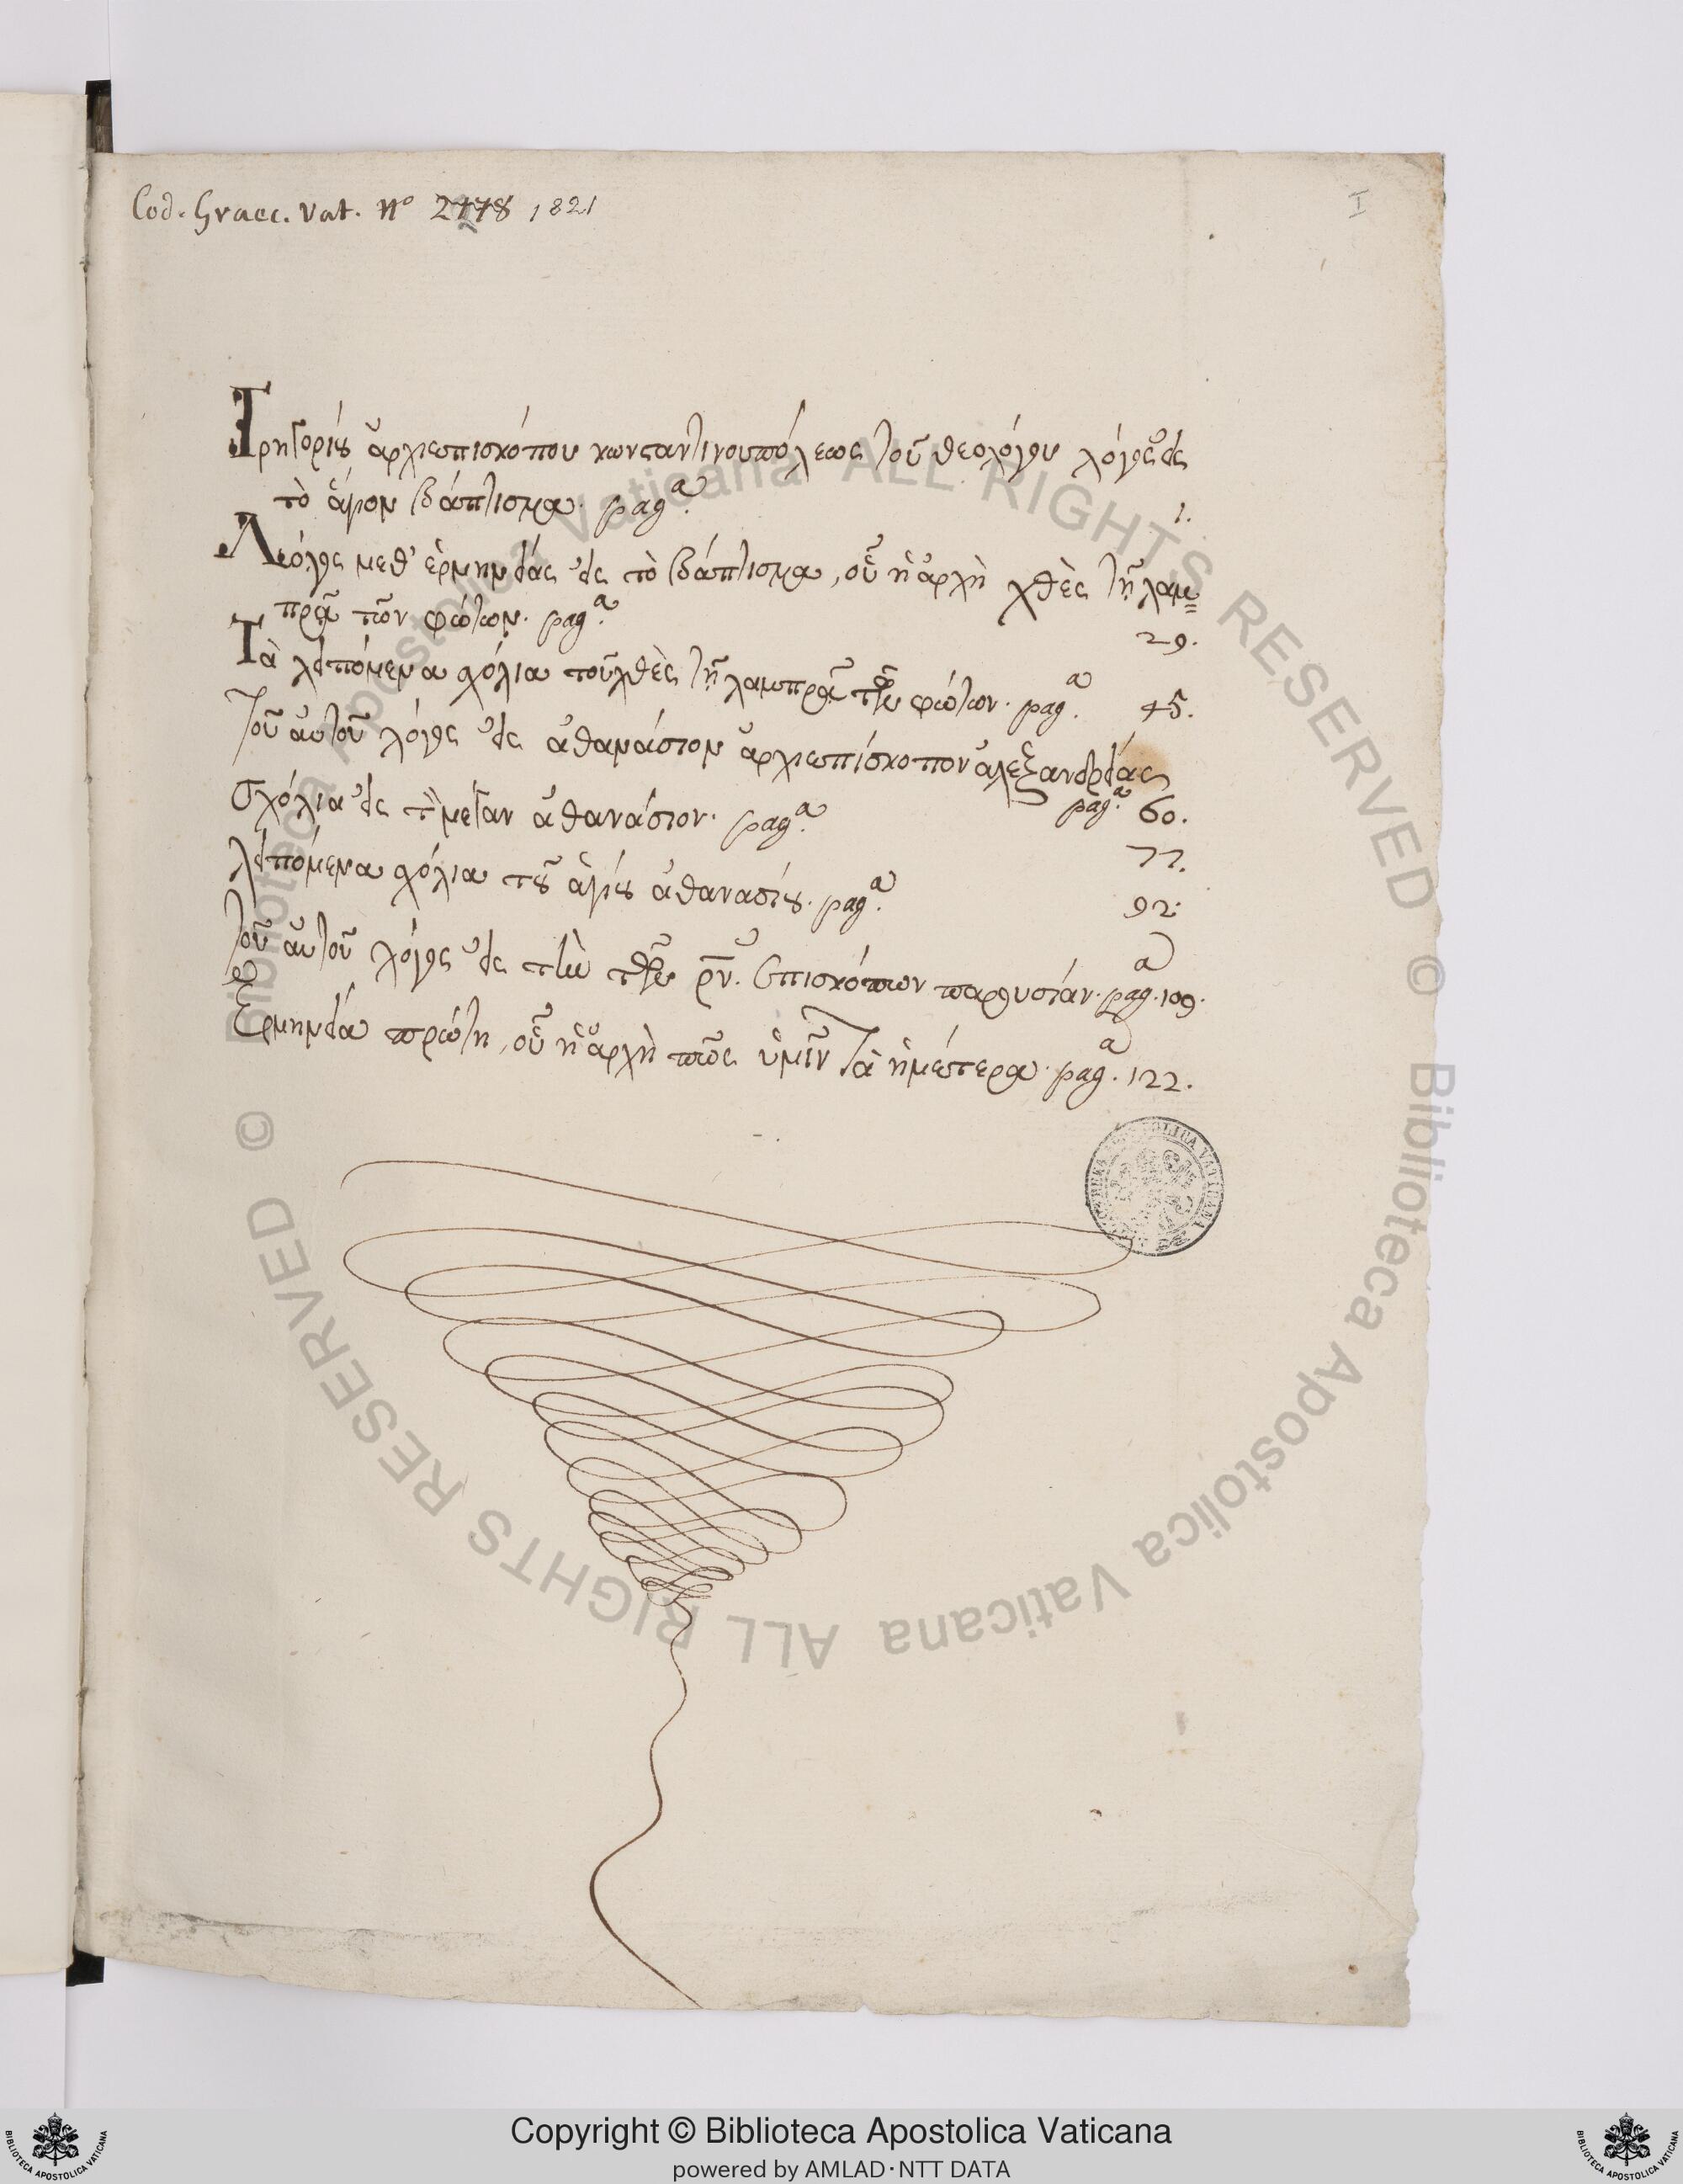 Cod. Graec. Vat. nº 2178 1821
I
Γρηγορίου ἀρχιεπισκόπου κωνσταντινουπόλεως τοῦ θεολόγου λόγος εἰς
τὸ ἅγιον βάπτισμα. pag.ª 1.
λόγος μεθ' ἑρμηνείας εἰς τὸ βάπτισμα, οὗ ἡ ἀρχὴ χθὲς τῇ λαμ=
πρᾷ τῶν φώτων. pag.ª 29.
Τὰ λειπόμενα σχόλια τοῦ χθὲς τῇ λαμπρᾷ τῶν φώτων. pag.ª 45.
Τοῦ αὐτοῦ λόγος εἰς ἀθανάσιον ἀρχιεπίσκοπον ἀλεξανδρείας
pag.ª 60.
Σχόλια εἰς τὸν μέγαν ἀθανάσιον. pag.ª 77.
λειπόμενα σχόλια τοῦ ἁγίου ἀθανασίου. pag.ª 92.
Τοῦ αὐτοῦ λόγος εἰς τὴν τῶν ρν. ἐπισκόπων παρουσίαν. pag.ª 109.
Ἑρμηνεία πρώτη, οὗ ἡ ἀρχὴ πῶς ὑμῖν τὰ ἡμέτερα. pag.ª 122.
© Biblioteca Apostolica Vaticana ALL RIGHTS RESERVED © Biblioteca Apostolica Vaticana ALL RIGHTS RESERVED
Copyright © Biblioteca Apostolica Vaticana
powered by AMLAD·NTT DATA
BIBLIOTECA APOSTOLICA VATICANA
BIBLIOTECA APOSTOLICA VATICANA